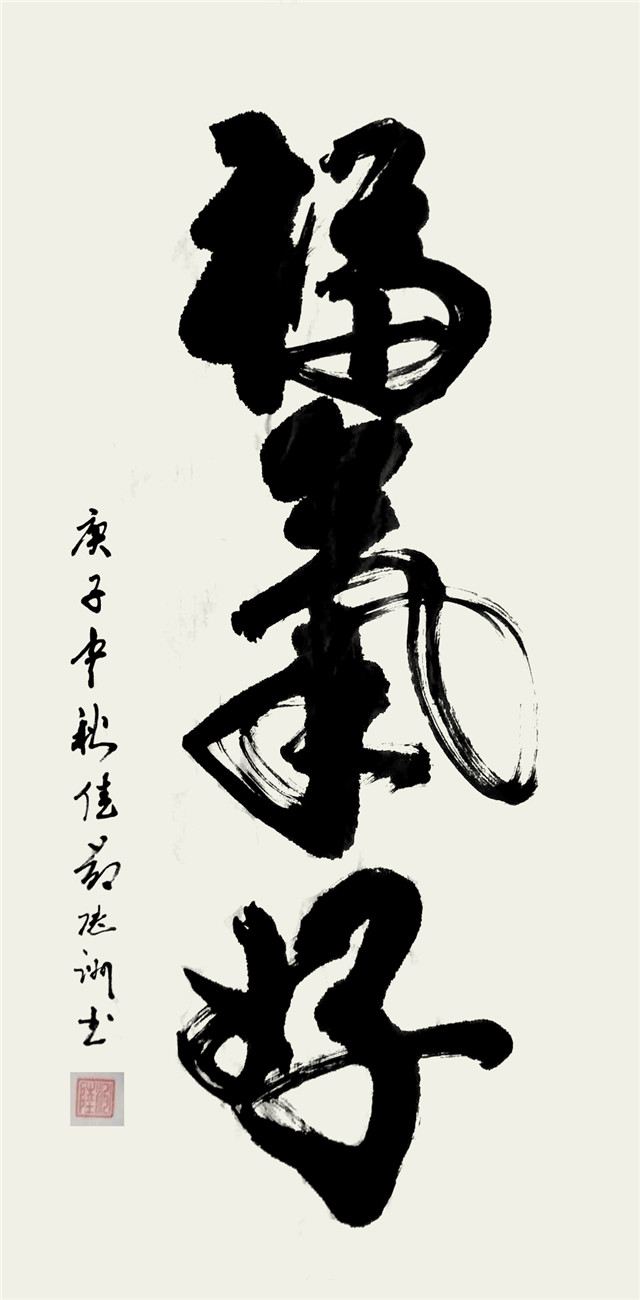 福氣好
庚子中秋佳節陸洲書